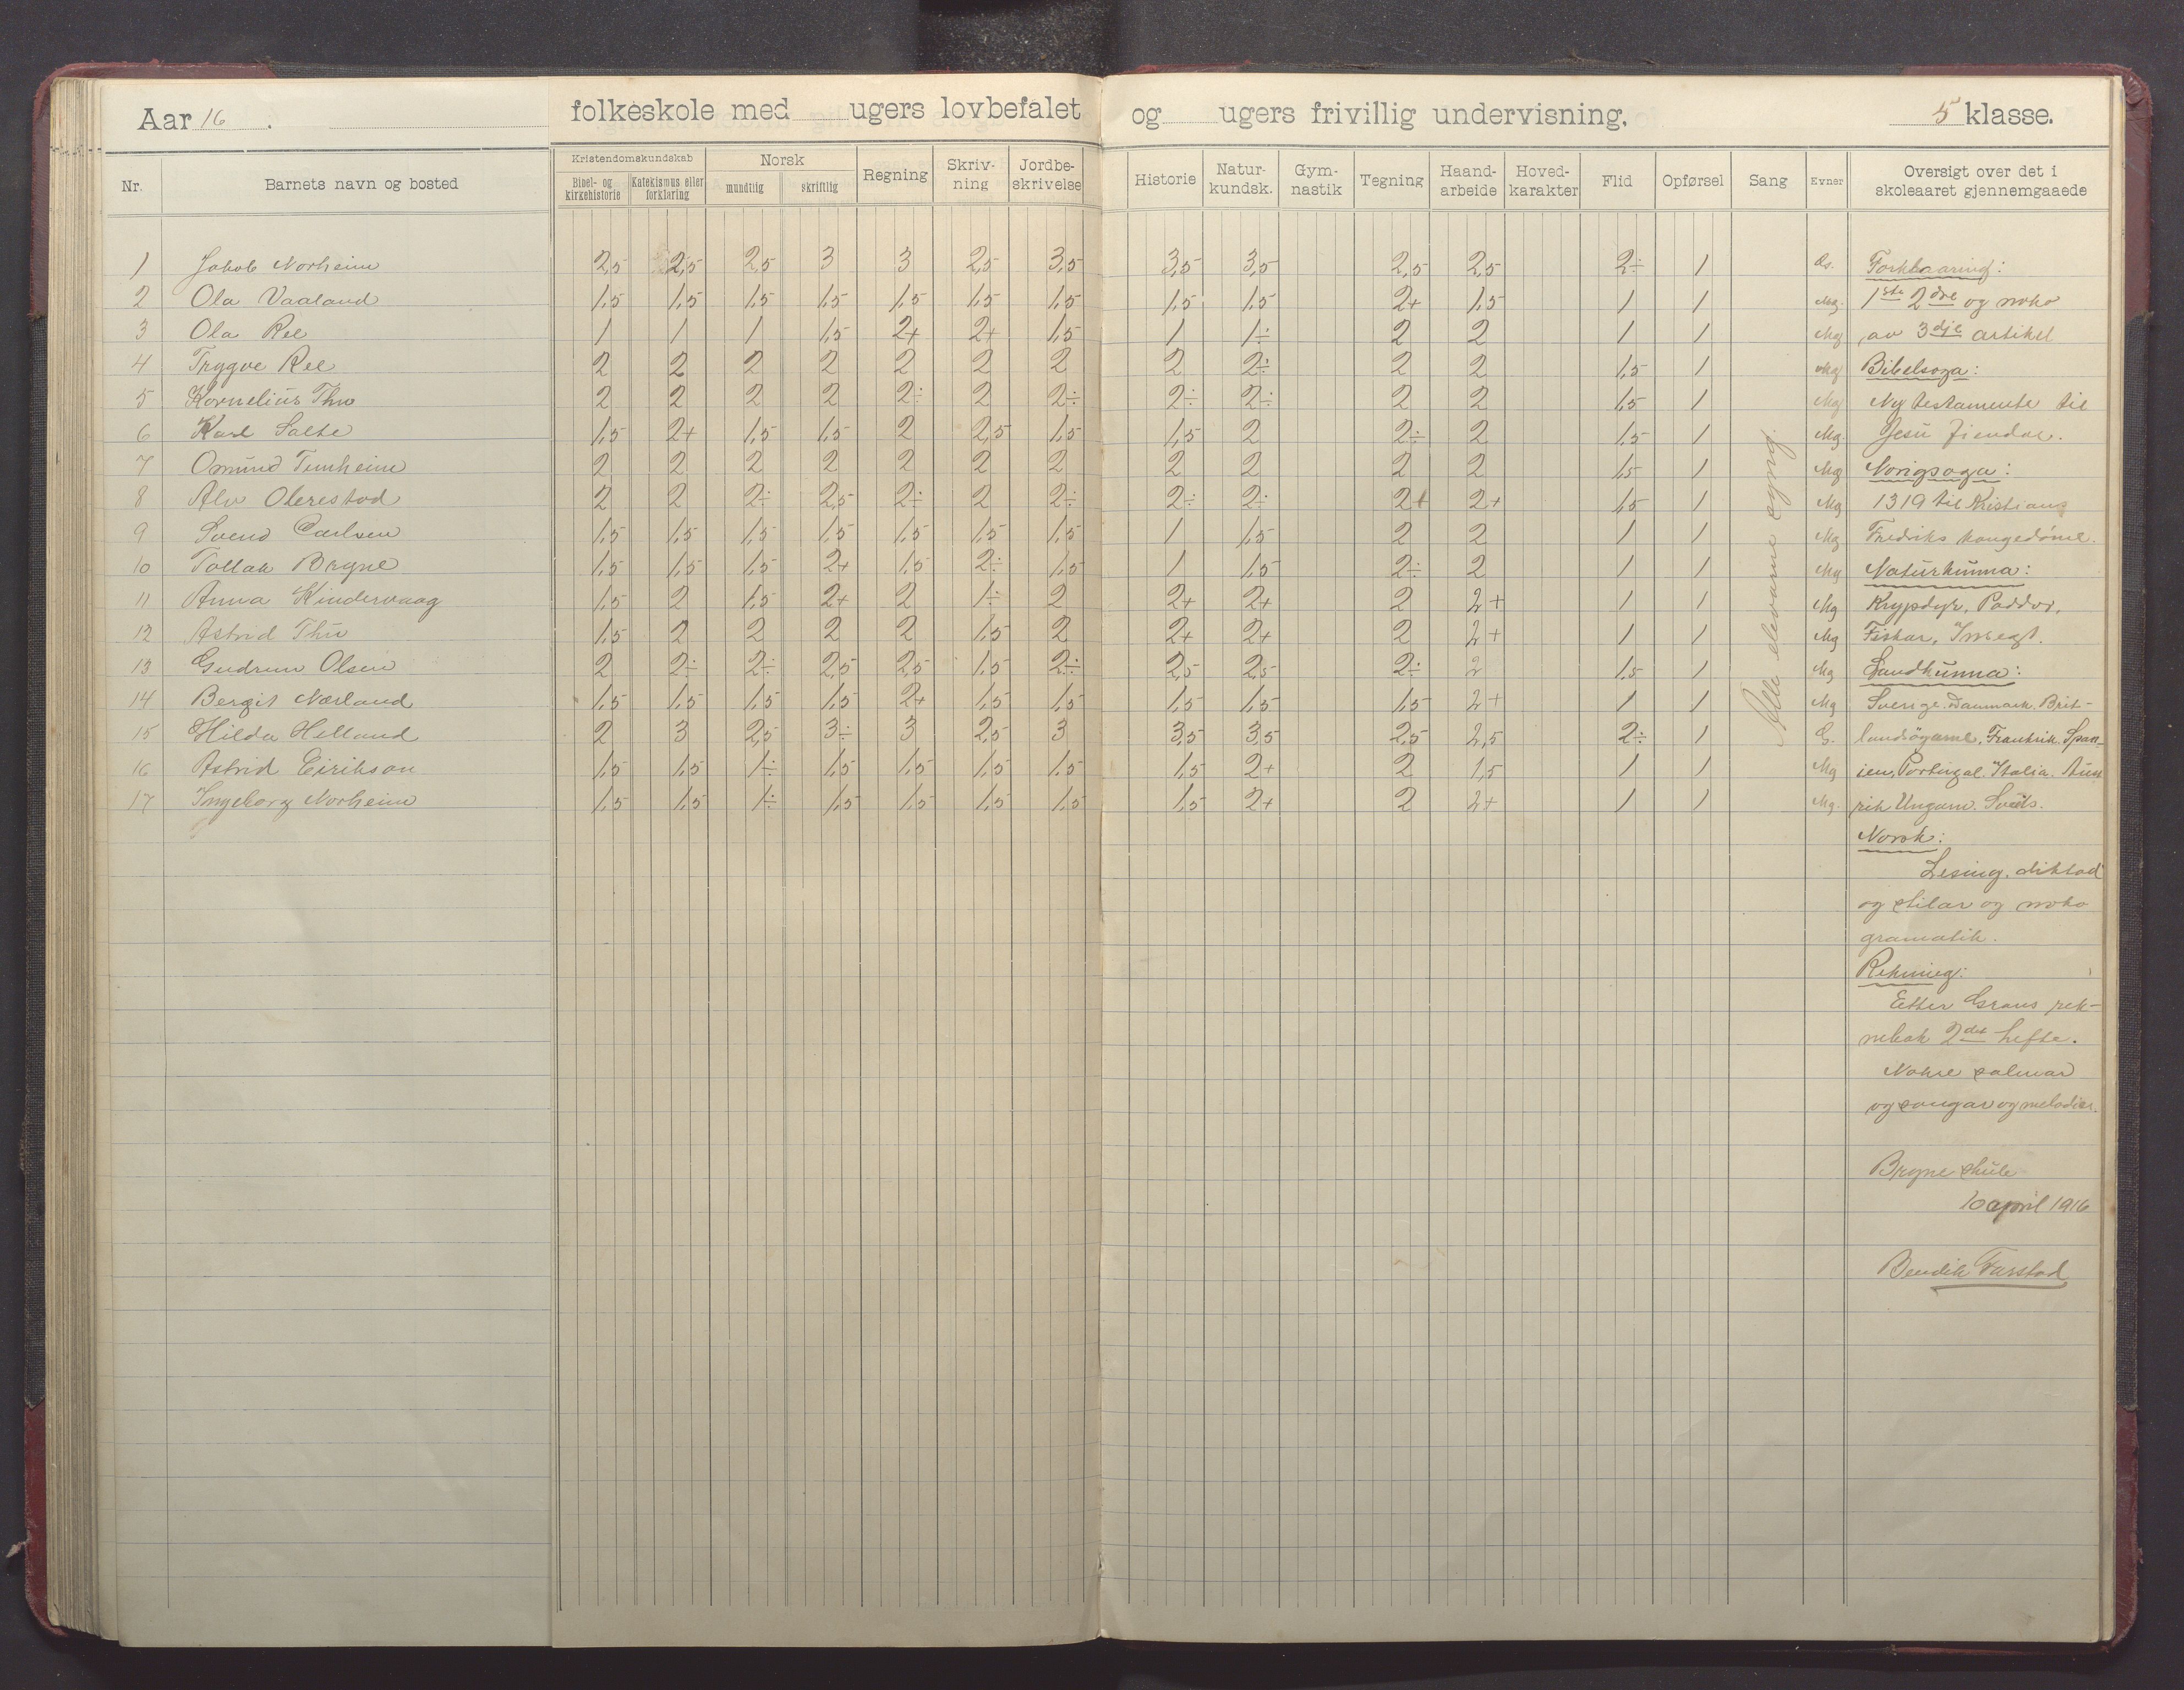 Aar 16 . folkeskole med ugers lovbefalet og ugers frivillig undervisning. 5 klasse.
Nr. Barnets navn og bosted Kristendomskundskab Bibel- og kirkehistorie Katekismus eller forklaring Norsk mundtlig skriftlig Regning Skriv-ning Jordbe-skrivelse Historie Natur-kundsk. Gym-nastik Tegning Haand-arbeide Hoved-karakter Flid Opførsel Sang Evner Oversigt over det i skoleaaret gjennemgaaede
1 Jakob Norheim 2,5 2,5 2,5 3 3 2,5 3,5 3,5 3,5 2,5 2,5 2÷ 1 Forklaaring:
2 Ola Vaaland 1,5 1,5 1,5 1,5 1,5 1,5 1,5 1,5 1,5 2+ 1,5 1 1 Mg. 1ste 2dre og noko
3 Ola Ree 1 1 1 1,5 2+ 2+ 1,5 1 1÷ 2 2 1 1 Mg av 3dje artikel
4 Trygve Ree 2 2 2 2 2 2 2 2 2÷ 2 2 1,5 1 Mg Bibelsoga:
5 Kornelius Thu 2 2 2 2 2÷ 2 2÷ 2÷ 2÷ 2 2 1,5 1 Mg Ny testamente til
6 Karl Salte 1,5 2+ 1,5 1,5 2 2,5 1,5 1,5 2 2÷ 2 1,5 1 Mg. Jesu fiendar.
7 Omund Tunheim 2 2 2 2 2 2 2 2 2 2 2 1,5 1 Mg Norigsoga:
8 Alv Oterestad 2 2 2÷ 2,5 2÷ 2 2÷ 2÷ 2÷ 2+ 2+ 1,5 1 Mg 1319 til Kristian
9 Svend Carlsen 1,5 1,5 1,5 1,5 1,5 1,5 1,5 1 1,5 2 2 1 1 Mg Fredriks kongedöme.
10 Tollak Bryne 1,5 1,5 1,5 2+ 1,5 2÷ 1,5 1 1,5 2÷ 2 1 1 Mg Naturkunna:
11 Anna Kindervaag 1,5 2 1,5 2+ 2 1÷ 2 2+ 2+ 2 2+ 1 1 Mg Krypdyr, Paddor,
12 Astrid Thu 1,5 2 2 2 2 1,5 2 2+ 2+ 2 2+ 1 1 Mg Fiskar, Insegt.
13 Gudrun Olsen 2 2÷ 2÷ 2,5 2,5 1,5 2÷ 2,5 2,5 2÷ 2 1,5 1 Mg Landkunna:
14 Bergit Nærland 1,5 1,5 1,5 1,5 2+ 1,5 1,5 1,5 1,5 1,5 2+ 1 1 Mg Sverige. Danmark. Brit-
15 Hilda Helland 2 3 2,5 3÷ 3 2,5 3 3,5 3,5 2,5 2,5 2÷ 1 G. landsöyarne, Frankrik. Span-
16 Astrid Eirikson 1,5 1,5 1÷ 1,5 1,5 1,5 1,5 1,5 2+ 2 1,5 1 1 Mg ien, Portugal. Italia. Aust
17 Ingeborg Norheim 1,5 1,5 1÷ 1,5 1,5 1,5 1,5 1,5 2+ 2 2+ 1 1 Mg. rik Ungarn. Sveits.
Alle elevarne syng.
Norsk:
Lesing, diktad
og stilar og noko
gramatik.
Rekning:
Etter Grans rek-
nebok 2det hefte.
Nokre salmar
og songar og melodiar.
Bryne skule
10 april 1916
Bendik Farstad